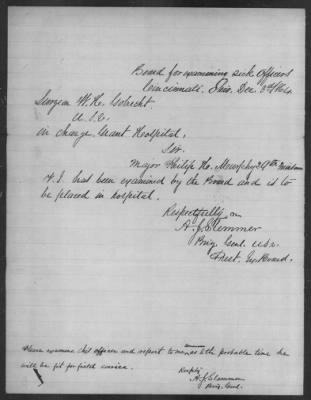 Board for examining sick Officers
Cincinnati, Ohio. Dec. 3d 1864.
Surgeon W. H. Gobrecht.
U.S.V.
in charge Grant Hospital,
Sir.
Major Philip H. Murphy 29th Missouri
V.I. has been examined by the Board and is to
be placed in hospital.
Respectfully
A. J. Slemmer
Brig. Genl. U.S.V.
Prest. Ex. Board.
Please examine this officer and report to me the probable time he
will be fit for field service.
Respfly
A. J. Slemmer
Brig. Genl.